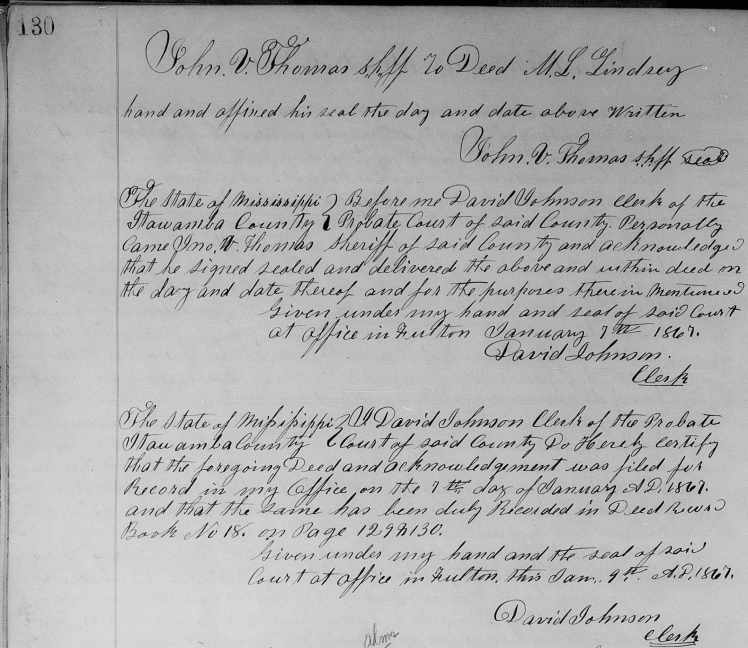 130
John. V. Thomas shff To Deed M. L. Lindsey
hand and affixed his seal the day and date above Written
John. V. Thomas shff seal
The State of Mississippi } Before me David Johnson Clerk of the
Itawamba County } Probate Court of said County. Personally
Came Jno, V. Thomas Sheriff of said County and acknowledged
that he signed sealed and delivered the above and within deed on
the day and date thereof and for the purposes therein Mentioned
Given under my hand and seal of said Court
at office in Fulton January 7th 1867.
David Johnson.
Clerk
The State of Mississippi } I David Johnson Clerk of the Probate
Itawamba County } Court of said County Do Hereby Certify
that the foregoing Deed and acknowledgement was filed for
Record in my Office, on the 7th day of January A.D. 1867.
and that the same has been duly Recorded in Deed Record
Book No 18. on Page 129 & 130.
Given under my hand and the seal of said
Court at office in Fulton, this Jan. 9th A.D. 1867.
David Johnson
Clerk